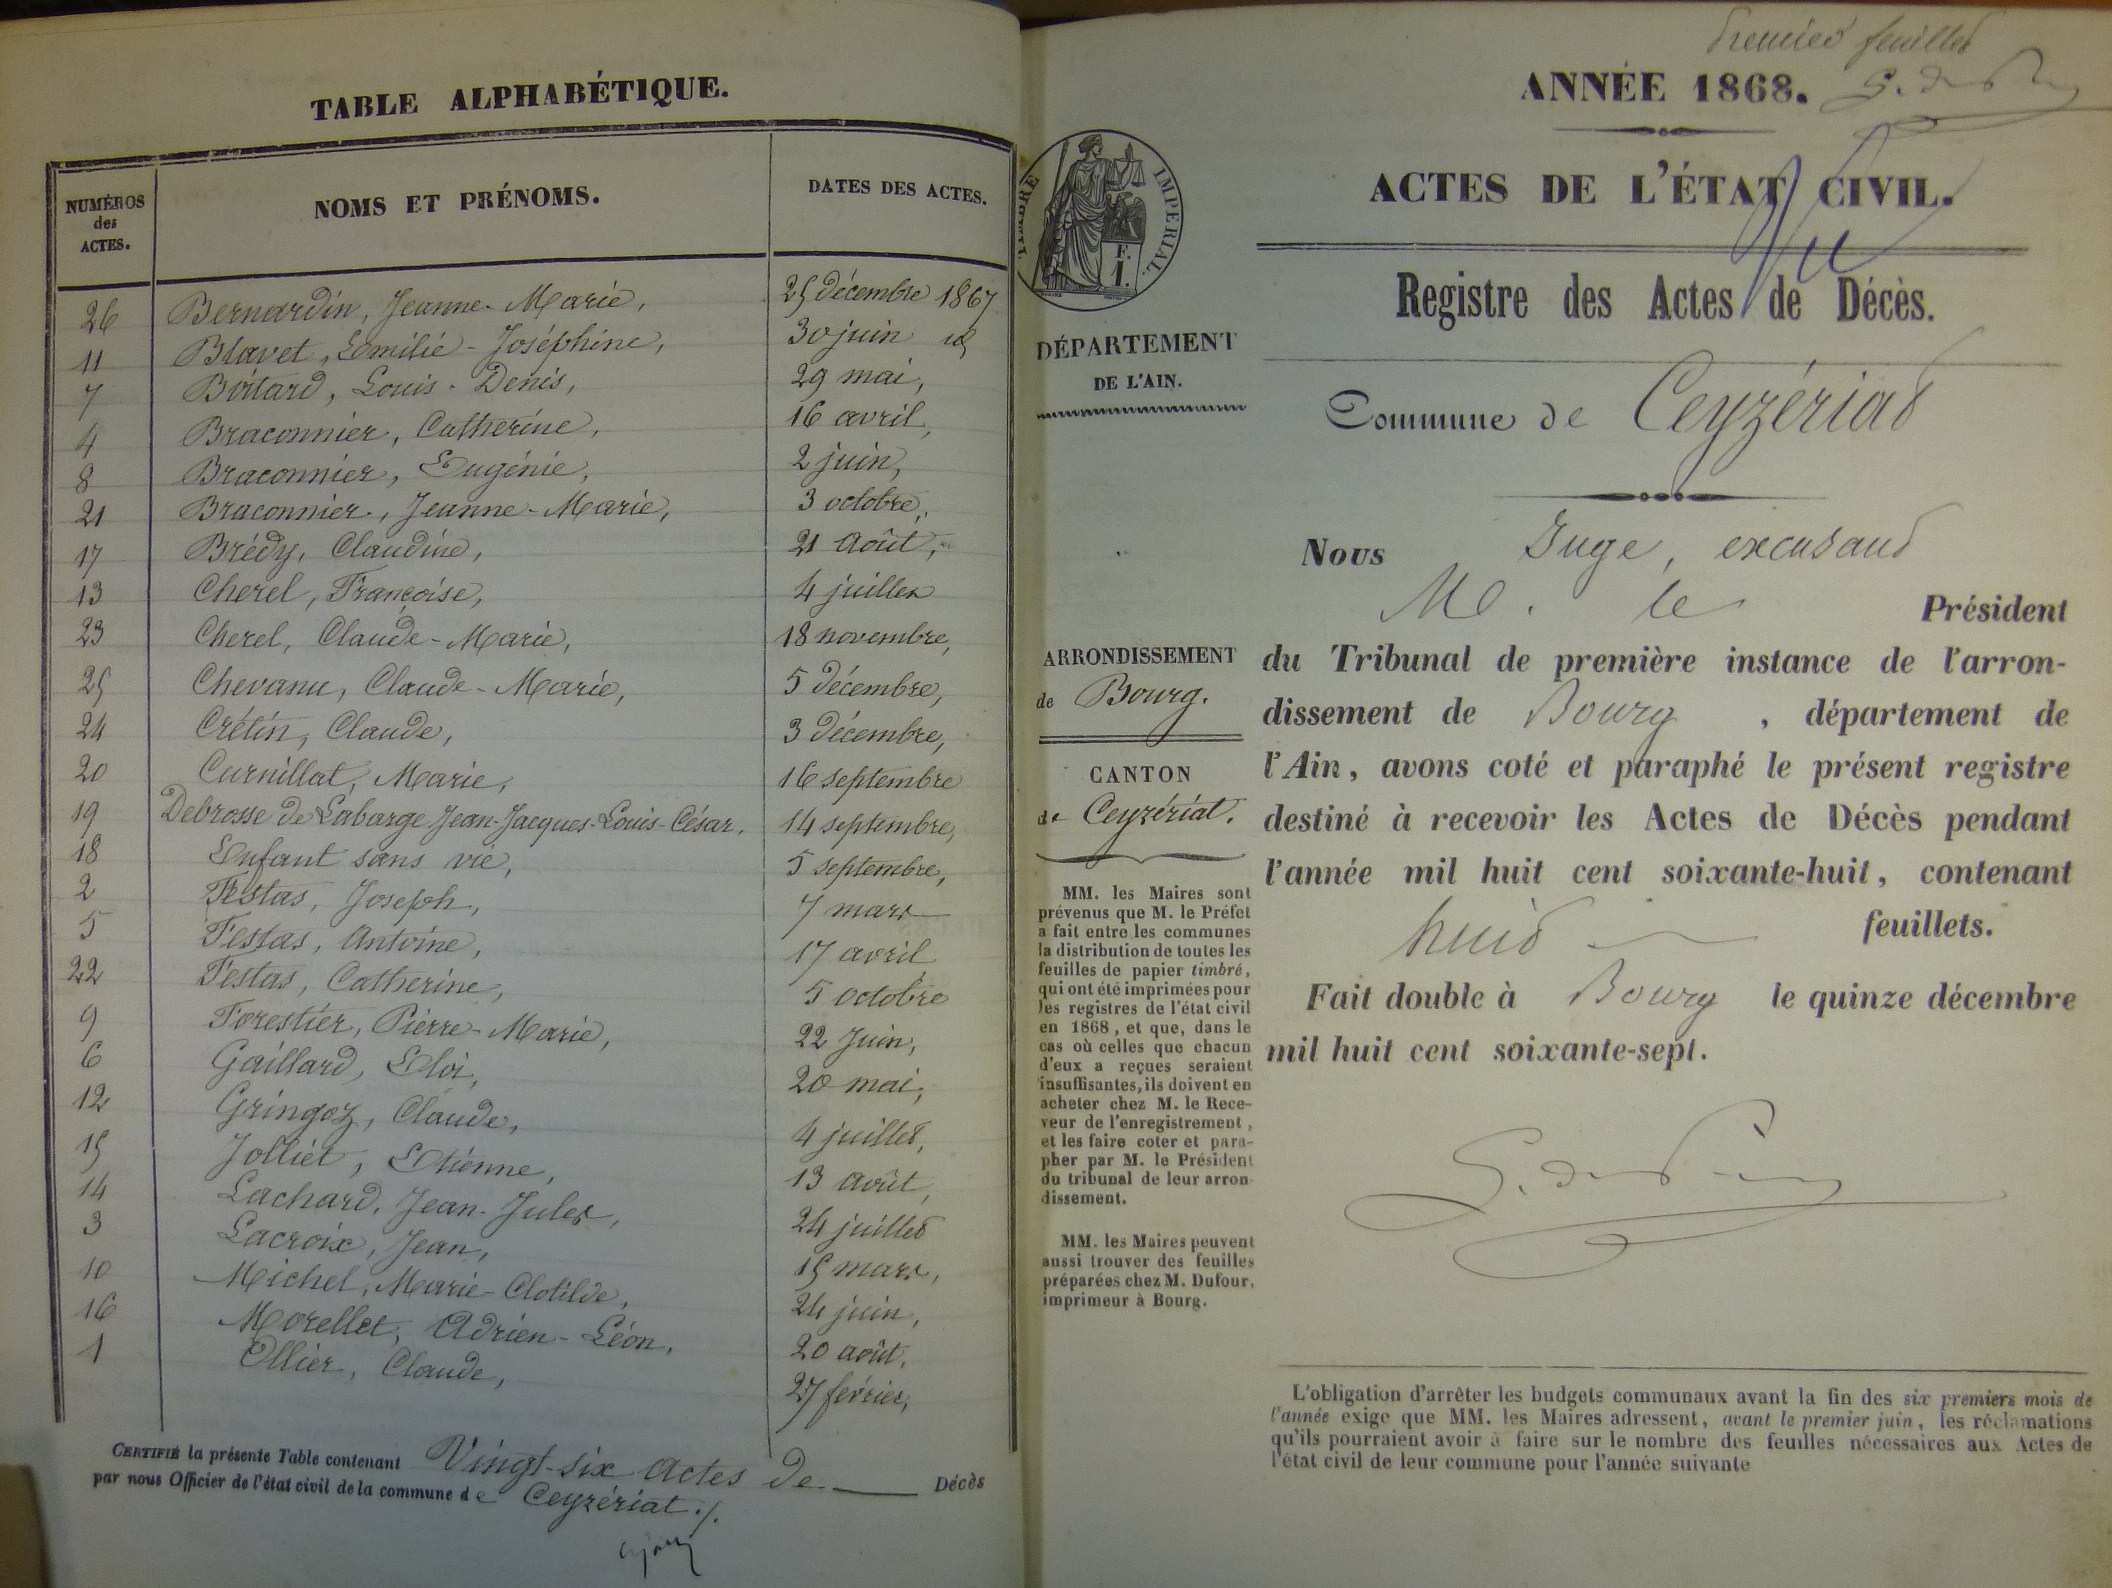 TABLE ALPHABÉTIQUE.
NUMÉROS des ACTES.
NOMS ET PRÉNOMS.
DATES DES ACTES.
26 Bernardin, Jeanne-Marie, 25 décembre 1867
11 Blavet, Emilie-Joséphine, 30 juin id
7 Boitard, Louis-Denis, 29 mai,
4 Braconnier, Catherine, 16 avril,
8 Braconnier, Eugénie, 2 juin,
21 Braconnier, Jeanne-Marie, 3 octobre,
17 Brédy, Claudine, 21 Août,
13 Cherel, Françoise, 4 juillet
23 Cherel, Claude-Marie, 18 novembre,
25 Chevanu, Claude-Marie, 5 décembre,
24 Crétin, Claude, 3 décembre,
20 Curnillat, Marie, 16 septembre
19 Debrosse de Labarge Jean-Jacques-Louis-César. 14 septembre,
18 Enfant sans vie, 5 septembre,
2 Festas, Joseph, 7 mars
5 Festas, Antoine, 17 avril
22 Festas, Catherine, 5 octobre
9 Forestier, Pierre-Marie, 22 Juin,
6 Gaillard, Eloi, 20 mai,
12 Gringoz, Claude, 4 juillet,
15 Jolliet, Etienne, 13 août,
14 Lachard, Jean-Jules, 24 juillet
3 Lacroix, Jean, 15 mars,
10 Michel, Marie-Clotilde, 24 juin,
16 Morellet, Adrien-Léon, 20 août,
1 Ollier, Claude, 27 fevrier,
CERTIFIÉ la présente Table contenant Vingt-six actes de Décès
par nous Officier de l'état civil de la commune de Ceyzériat ./.
Premier feuillet
ANNÉE 1868.
TIMBRE IMPERIAL.
F.
1.
ACTES DE L'ÉTAT CIVIL.
Vu
Registre des Actes de Décès.
DÉPARTEMENT
DE L'AIN.
Commune de Ceyzériat
Nous Juge, excusant
M. le Président
ARRONDISSEMENT
de Bourg.
CANTON
de Ceyzériat.
du Tribunal de première instance de l'arron-
dissement de Bourg, département de
l'Ain, avons coté et paraphé le présent registre
destiné à recevoir les Actes de Décès pendant
l'année mil huit cent soixante-huit, contenant
huit feuillets.
Fait double à Bourg le quinze décembre
mil huit cent soixante-sept.
MM. les Maires sont
prévenus que M. le Préfet
a fait entre les communes
la distribution de toutes les
feuilles de papier timbré,
qui ont été imprimées pour
les registres de l'état civil
en 1868, et que, dans le
cas où celles que chacun
d'eux a reçues seraient
insuffisantes, ils doivent en
acheter chez M. le Rece-
veur de l'enregistrement,
et les faire coter et para-
pher par M. le Président
du tribunal de leur arron-
dissement.
MM. les Maires peuvent
aussi trouver des feuilles
préparées chez M. Dufour,
imprimeur à Bourg.
L'obligation d'arrêter les budgets communaux avant la fin des six premiers mois de
l'année exige que MM. les Maires adressent, avant le premier juin, les réclamations
qu'ils pourraient avoir à faire sur le nombre des feuilles nécessaires aux Actes de
l'état civil de leur commune pour l'année suivante